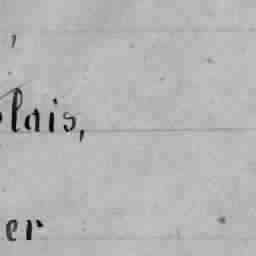 lais,
er